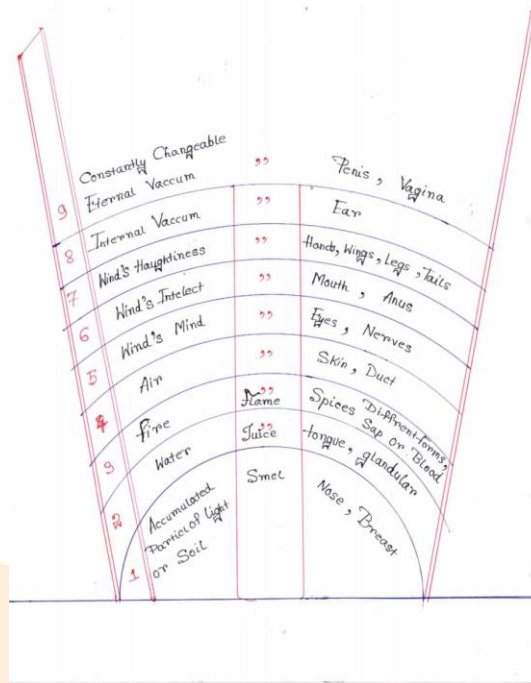 9 Constantly Changeable
Eternal Vaccum ,, Penis, Vagina
8 Internal Vaccum ,, Ear
7 Wind's Haughtiness ,, Hands, Wings, Legs, Tails
6 Wind's Intelect ,, Mouth, Anus
5 Wind's Mind ,, Eyes, Nerves
4 Air ,, Skin, Duct
3 fire ,, flame Spices Different forms,
Sap or Blood
2 Water Juice ,, tongue, glandular
1 Accumulated
Particl of Light
or Soil
Smel
Nose, Breast